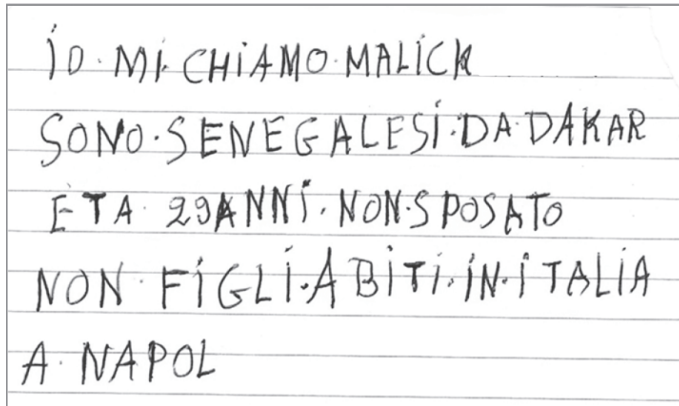 iO·Mi·CHiAMO·MALiCK
SONO·SENEGALESi·DA·DAKAR
ETA· 29ANNi·NON·SPOSATO
NON·FiGLi·ABiTi·iN·iTALiA
A·NAPOL